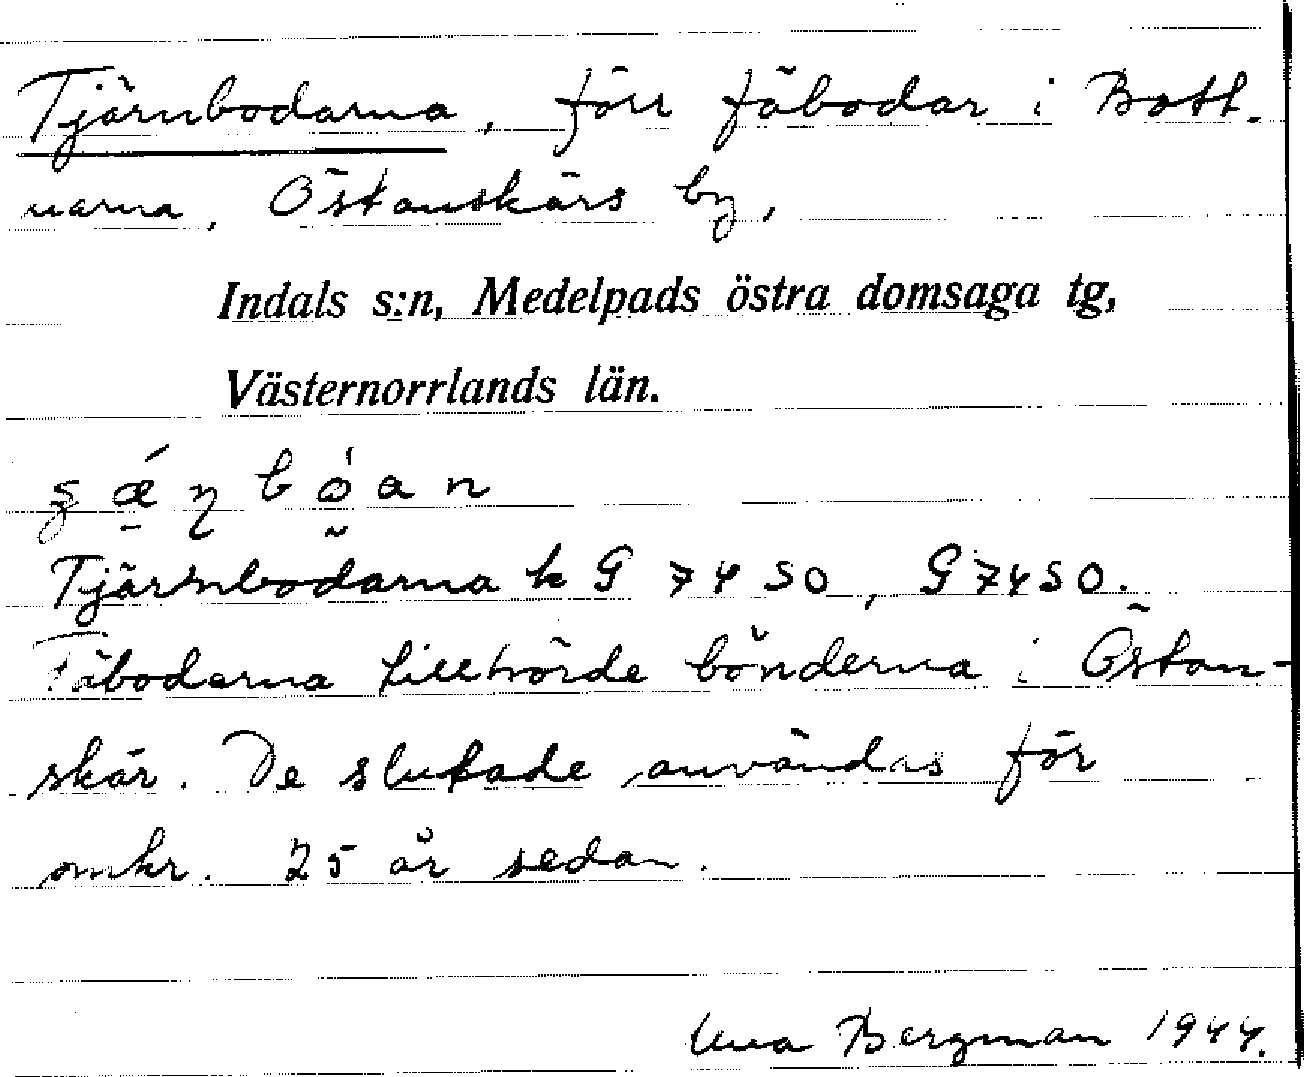 Tjärnbodarna, förr fäbodar i Bott-
narna, Östanskärs by,
Indals s:n, Medelpads östra domsaga tg,
Västernorrlands län.
Tjärnbodarna k G 7450, G 7450.
Fäbodarna tillhörde bönderna i Östan-
skär. De slutade användas för
omkr. 25 år sedan.
Bergman 1944.